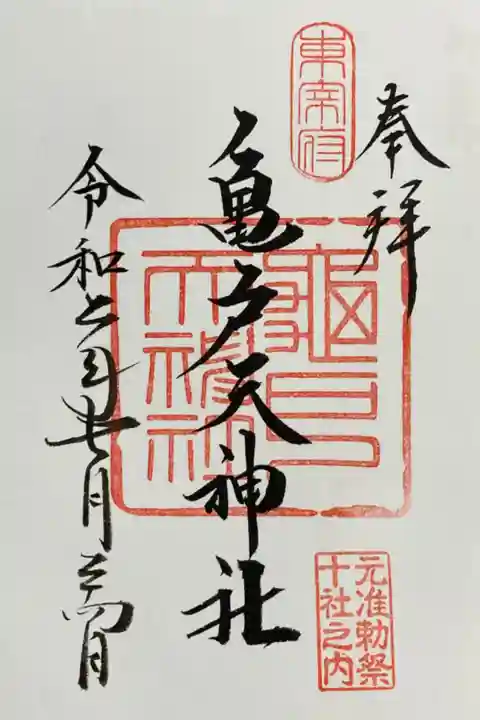 奉拝
東宰府
亀戸天神社
元准勅祭
十社之内
令和七年七月二十四日